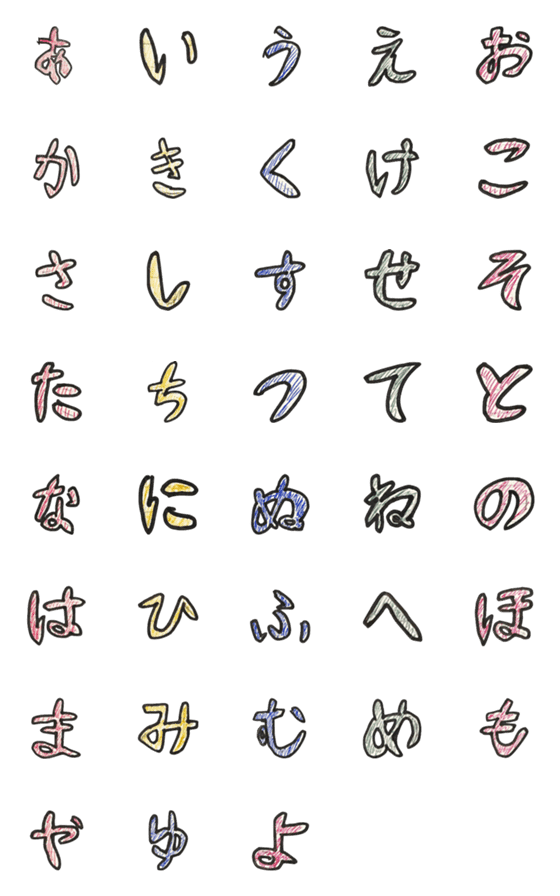 あいうえお
かきくけこ
さしすせそ
たちつてと
なにぬねの
はひふへほ
まみむめも
やゆよ